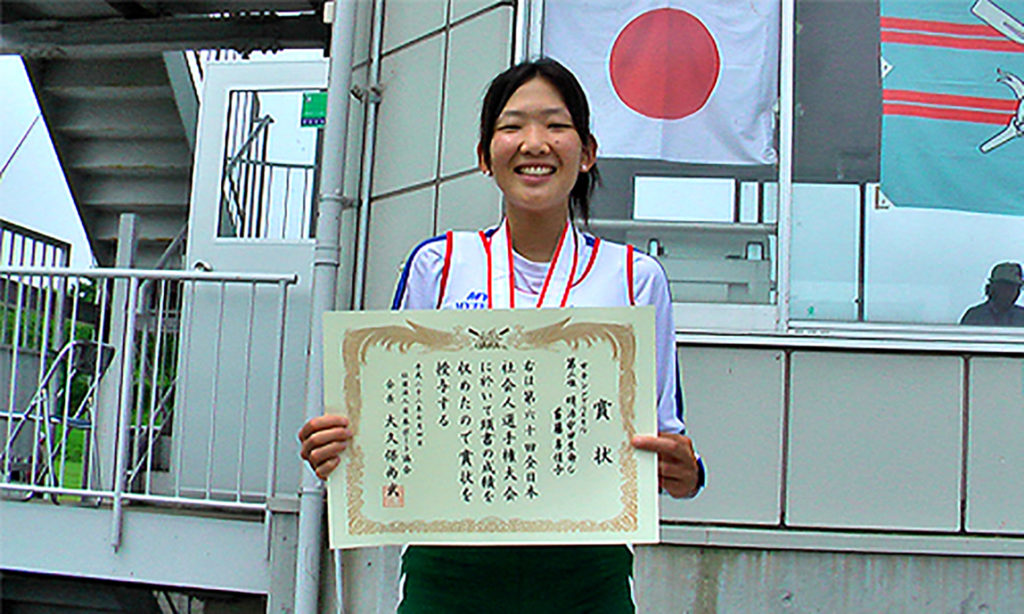 賞状
女子シングルスカル
第二位 明治安田生命
右は第六十回全日本
社会人選手権大会
に於いて頭書の成績を
収めたので賞状を
授与する
会長 大久保尚武